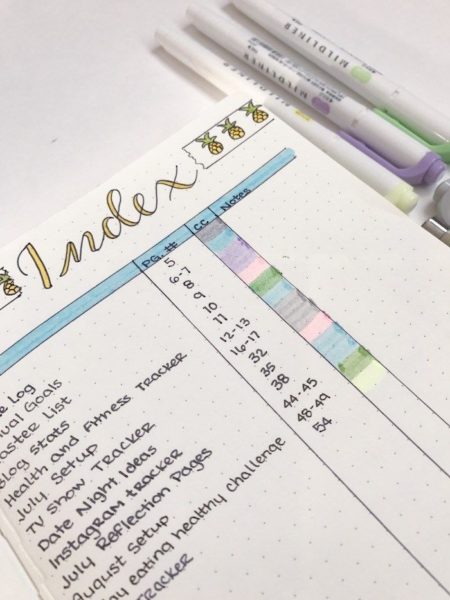 MILDLINER
MILDLINER
MILDLINER
Index
PG. # CC Notes
5
6-7
8
9
10
11
12-13
16-17
32
35
38
44-45
48-49
54
Log
Goals
List
Blog Stats
Health and Fitness Tracker
July Setup
TV Show Tracker
Date Night Ideas
Instagram Tracker
July Reflection Pages
August Setup
eating healthy challenge
Tracker